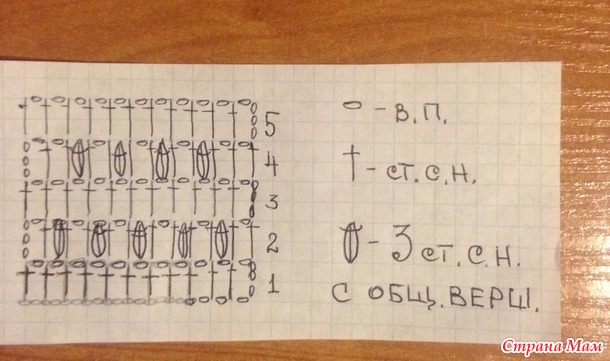 5
4
3
2
1
– В.П.
– СТ.С.Н.
– 3 СТ.С.Н.
С ОБЩ.ВЕРШ.
Страна Мам